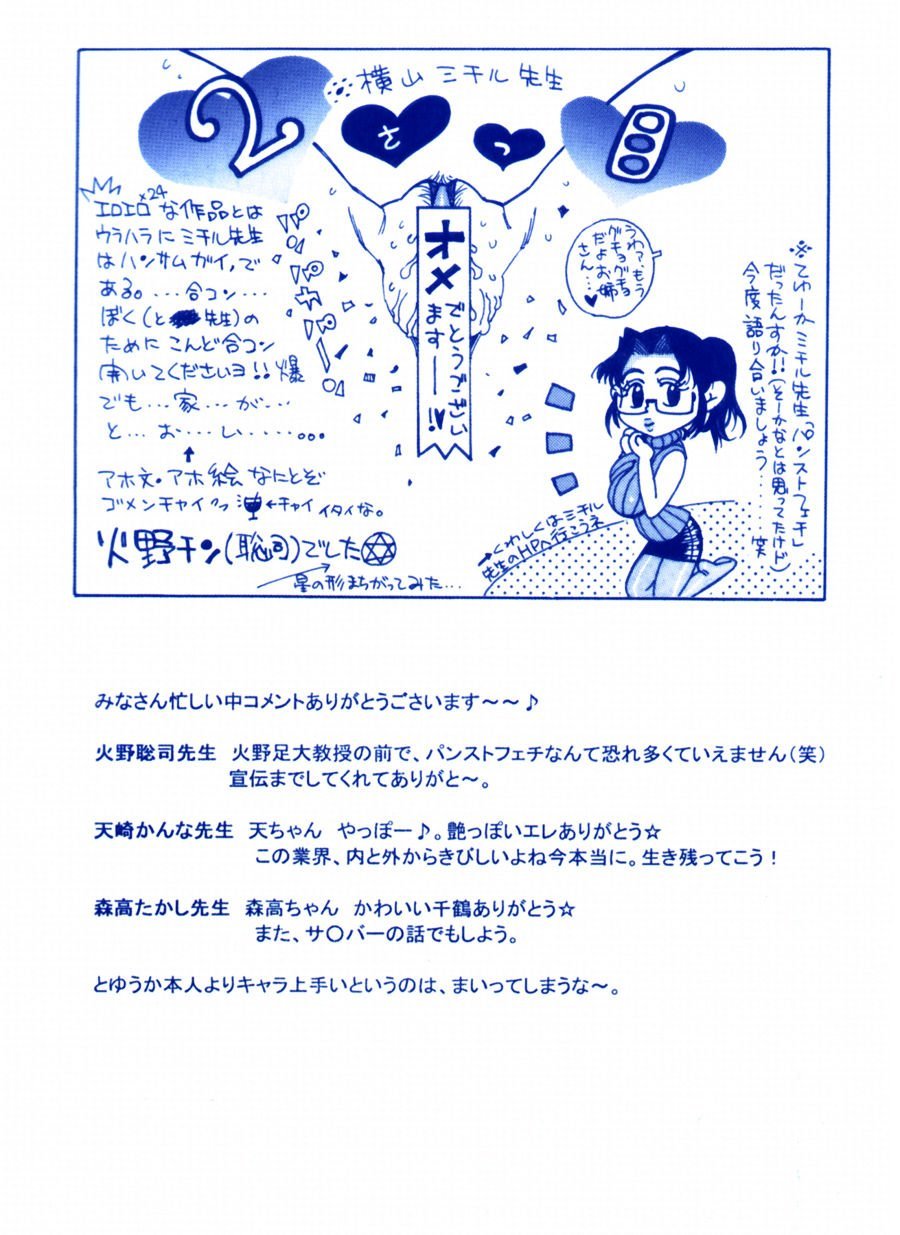 横山ミチル先生
2
さ
つ
目
オメ
でとうござい
ます――!!
パパパパーン。
エロエロ×24な作品とは
ウラハラにミチル先生
はハンサムガイ、で
ある。…合コン…
ぼく(と 先生)の
ためにこんど合コン
開いてくださいヨ!!爆
でも…家…が…
と…お…い……。。。
↑
アホ文・アホ絵なにとぞ
ゴメンチャイ ←チャイ イタイな。
火野チン(聡司)でした
星の形まちがってみた…
うわァもう
グチョグチョ
だよお姉
さん…♥
※てゆーかミチル先生「パンストフェチ」
だったんすか!!(そーかなとは思ってたけど)
今度語り合いましょう……笑
→くわしくはミチル
先生のHPへ行こうネ
みなさん忙しい中コメントありがとうございます～～♪
火野聡司先生 火野足大教授の前で、パンストフェチなんて恐れ多くていえません(笑)
宣伝までしてくれてありがと～。
天崎かんな先生 天ちゃん やっぽー♪。艶っぽいエレありがとう☆
この業界、内と外からきびしいよね今本当に。生き残ってこう!
森高たかし先生 森高ちゃん かわいい千鶴ありがとう☆
また、サ〇バーの話でもしよう。
とゆうか本人よりキャラ上手いというのは、まいってしまうな～。